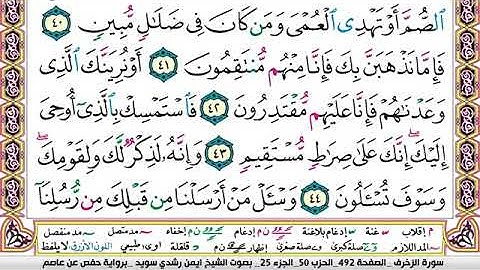 الصُّمَّ أَوْ تَهْدِى الْعُمْىَ وَمَن كَانَ فِى ضَلَٰلٍ مُّبِينٍ ٤٠
فَإِمَّا نَذْهَبَنَّ بِكَ فَإِنَّا مِنْهُم مُّنتَقِمُونَ ٤١ أَوْ نُرِيَنَّكَ الَّذِى
وَعَدْنَٰهُمْ فَإِنَّا عَلَيْهِم مُّقْتَدِرُونَ ٤٢ فَاسْتَمْسِكْ بِالَّذِىٓ أُوحِىَ
إِلَيْكَ ۖ إِنَّكَ عَلَىٰ صِرَٰطٍ مُّسْتَقِيمٍ ٤٣ وَإِنَّهُۥ لَذِكْرٌ لَّكَ وَلِقَوْمِكَ ۖ
وَسَوْفَ تُسْـَٔلُونَ ٤٤ وَسْـَٔلْ مَنْ أَرْسَلْنَا مِن قَبْلِكَ مِن رُّسُلِنَآ
م إقلاب غنة إدغام بلاغنة ن م إدغام ن م إخفاء مد متصل مد منفصل
المد اللازم صلة كبرى صلة صغرى إظهار ن م قلقلة اوى طبيعي اللون الأزرق لا يلفظ
سورة الزخرف _ الصفحة 492_ الحزب 50_ الجزء 25 _ بصوت الشيخ ايمن رشدي سويد _ برواية حفص عن عاصم